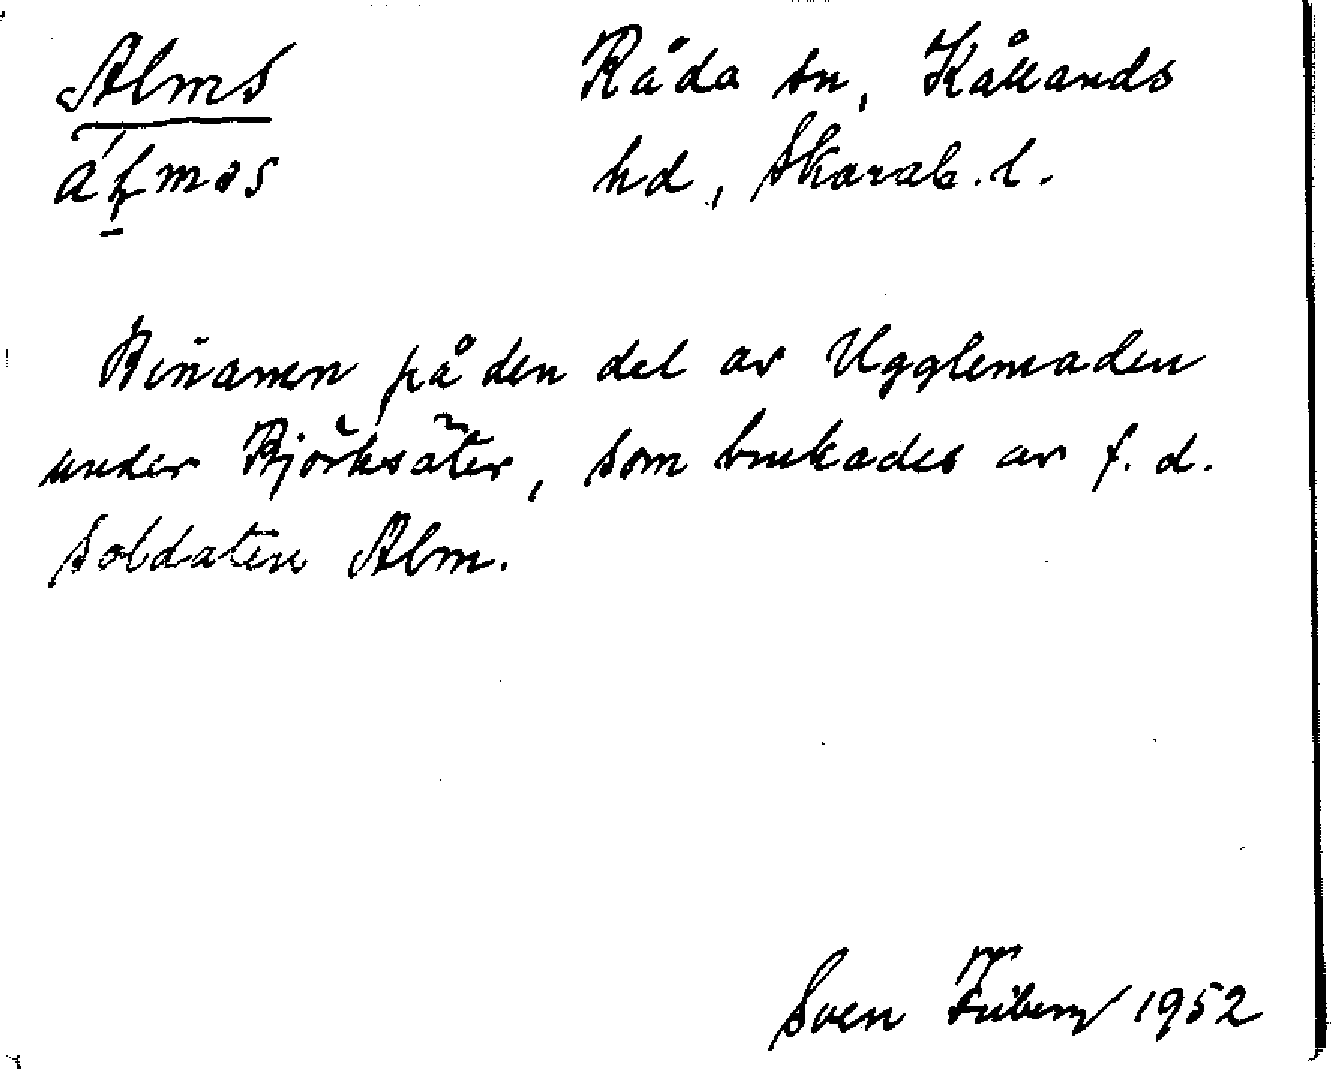 Alms Råda sn, Kållands
hd, Skarab. l.
Binamn på den del av Ugglemaden
under Björksäter, som brukades av f. d.
soldaten Alm.
Sven Friberg 1952